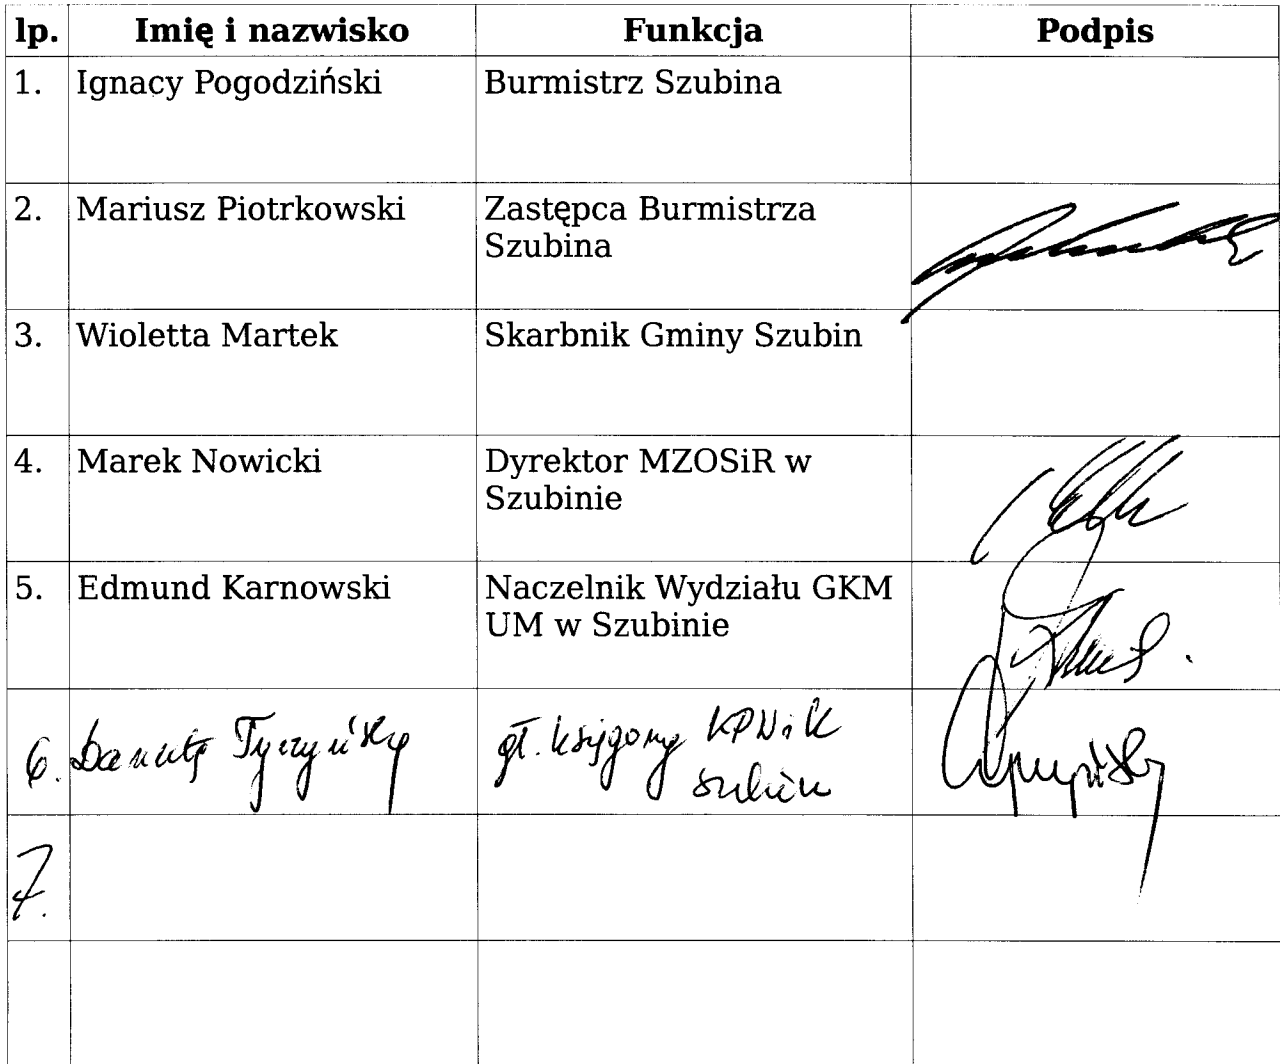 lp. Imię i nazwisko Funkcja Podpis
1. Ignacy Pogodziński Burmistrz Szubina
2. Mariusz Piotrkowski Zastępca Burmistrza
Szubina
3. Wioletta Martek Skarbnik Gminy Szubin
4. Marek Nowicki Dyrektor MZOSiR w
Szubinie
5. Edmund Karnowski Naczelnik Wydziału GKM
UM w Szubinie
6. Danuta gł. księgowy
7.